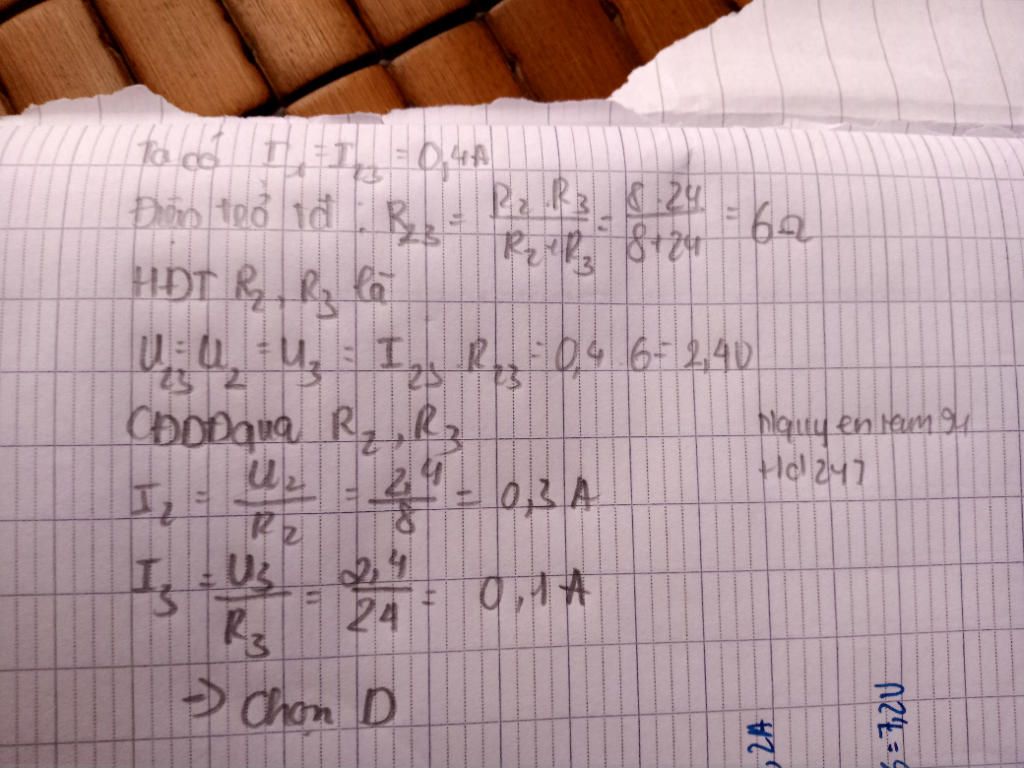 Ta có I₁ = I₂₃ = 0,4A
Điện trở tđ : R₂₃ = R₂.R₃/R₂+R₃ = 8.24/8+24 = 6Ω
HĐT R₂, R₃ là
U₂₃ = U₂ = U₃ = I₂₃ R₂₃ = 0,4 6 = 2,4V
CĐDĐ qua R₂, R₃
I₂ = U₂/R₂ = 2,4/8 = 0,3 A
I₃ = U₃/R₃ = 2,4/24 = 0,1 A
=> Chọn D
Hd247
,2A
= 7,2V